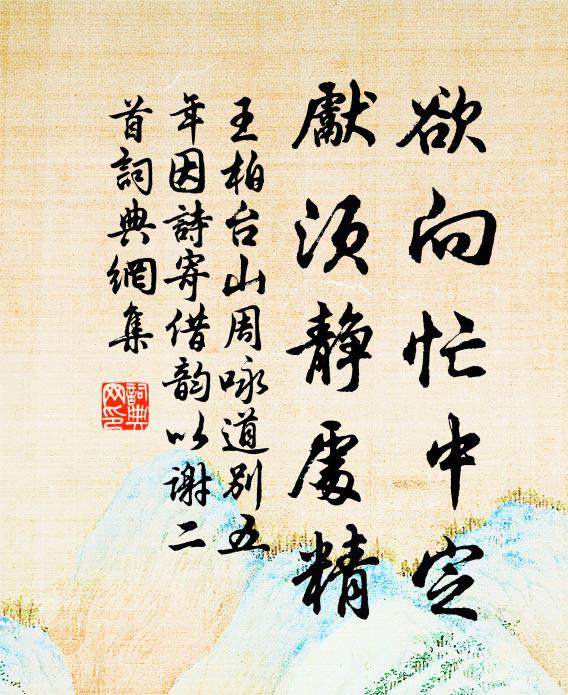 欲向忙中定
獻須静處精
王柏台山周咏道别五
年因詩寄借韵以谢二
首詞典網集
詞典
网印